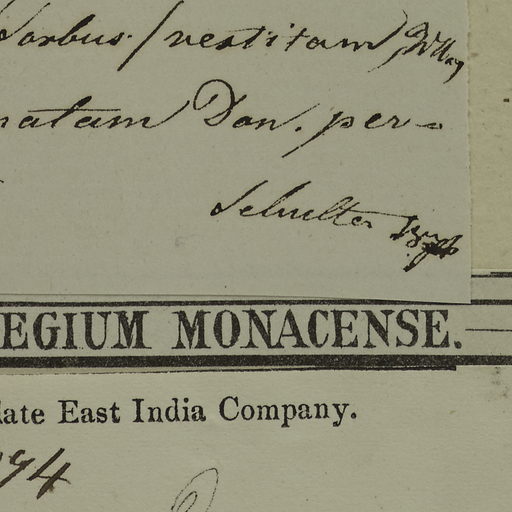 Sorbus. /vestitam)
natam Don. per-
EGIUM MONACENSE.
late East India Company.
94